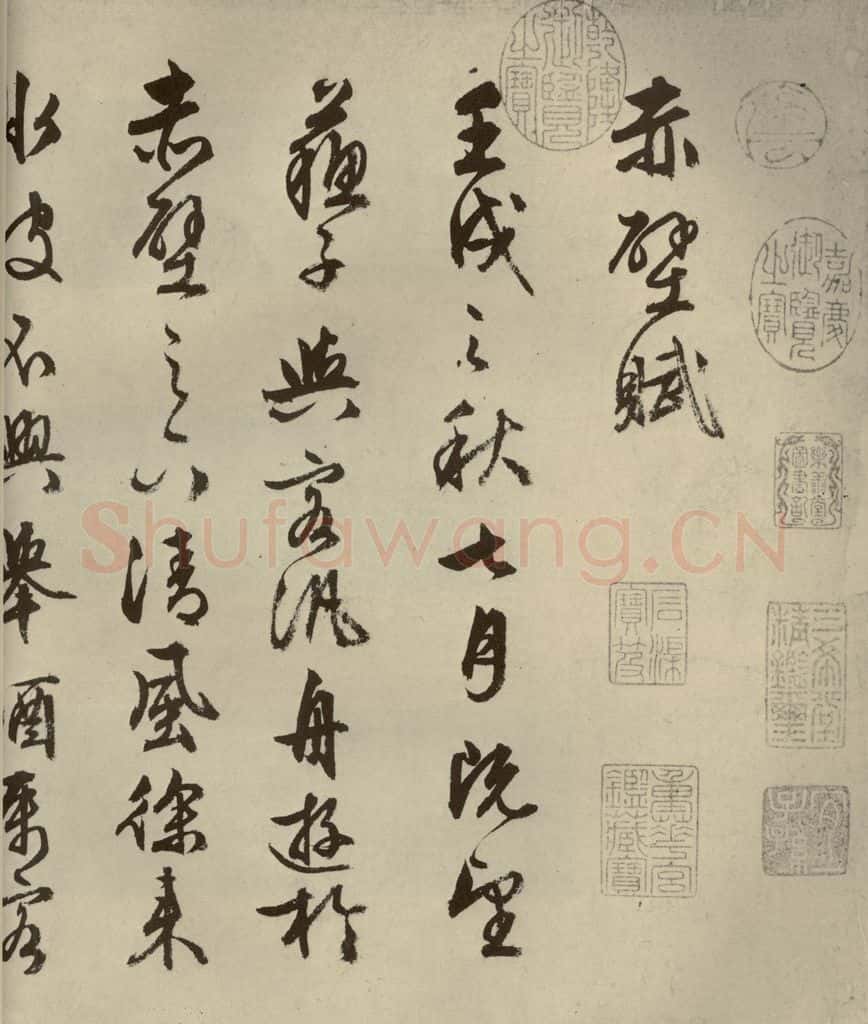 赤壁賦
壬戌之秋七月既望
蘇子與客汎舟遊於
赤壁之下清風徐來
水波不興舉酒屬客
乾隆御覽之寶
嘉慶御覽之寶
石渠寶笈
三希堂精鑑璽
宜子孫
鑑藏寶
Shufawang.CN